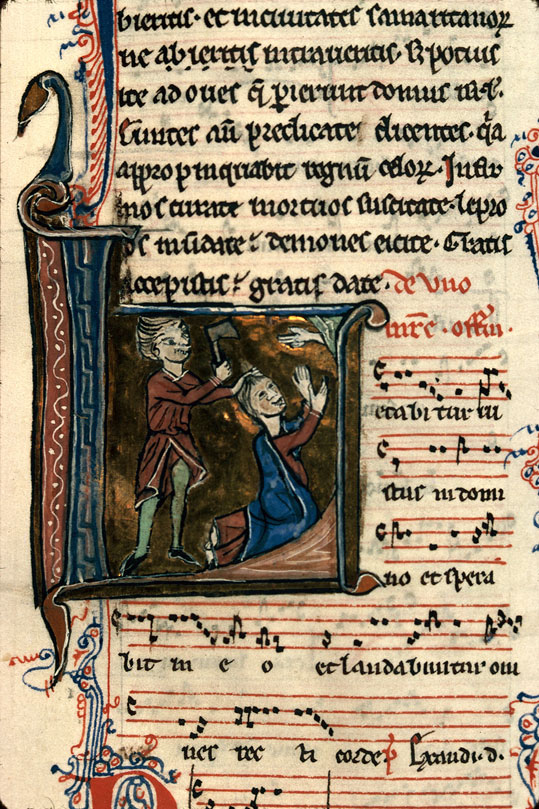 bieritis. et in ciuitates samaritanoꝝ
ne abieritis intraueritis. S; pocius
ite ad oues q̄ perierunt domus isrł.
Euntes aū predicate dicentes. q̄a
appropinquabit regnū celoꝝ. Infir
mos curate mortuos suscitate. lepro
sos mūdate demones eicite. Gratis
accepistis gratis date. de uno
mr̄e. offm̄.
etabitur iu
stus in domi
no et spera
bit in e o et laudabuntur om
nes rec ti corde. ℣ Exaudi. d.